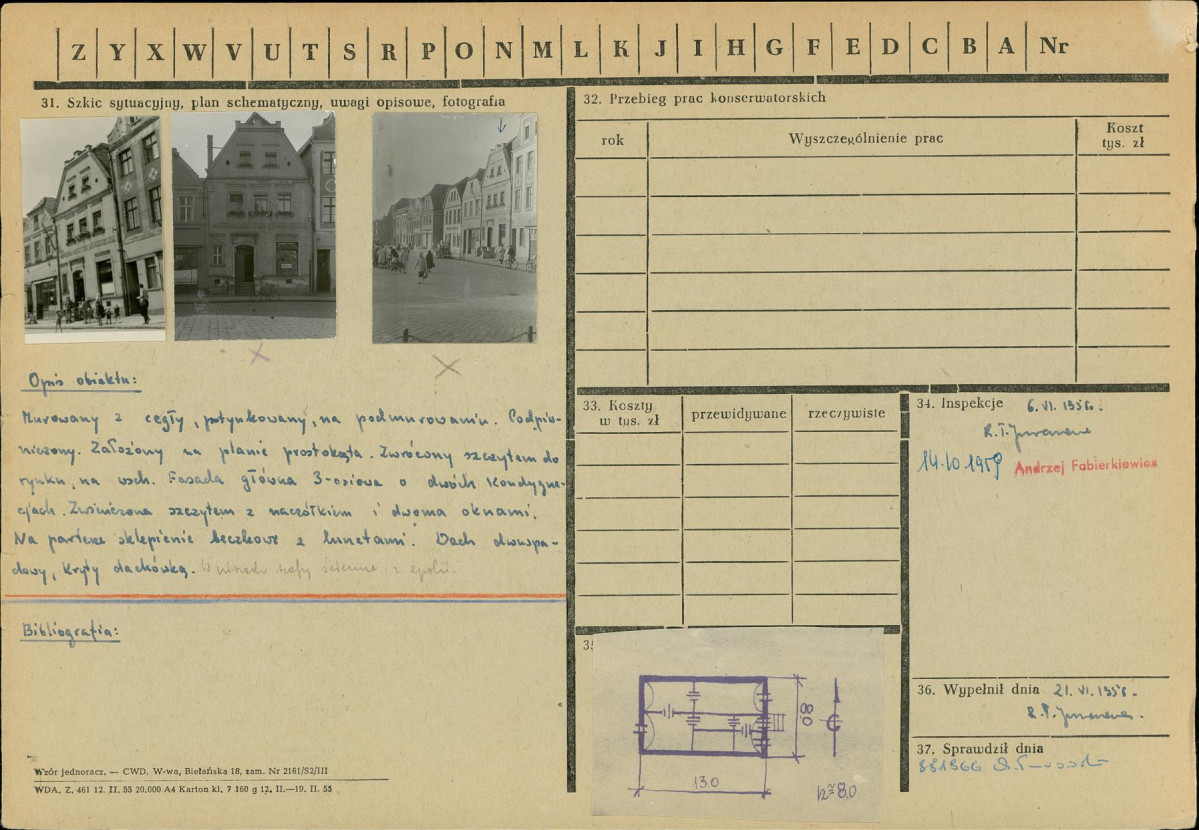 Z Y X W V U T S R P O N M L K J I H G F E D C B A Nr
31. Szkic sytuacyjny, plan schematyczny, uwagi opisowe, fotografia
Opis obiektu:
Murowany z cegły, potynkowany, na podmurowaniu. Podpiw-
niczony. Założony na planie prostokąta. Zwrócony szczytem do
rynku, na wsch. Fasada główna 3-osiowa o dwóch kondygna-
cjach. Zwieńczona szczytem z naczółkiem i dwoma oknami.
Na parterze sklepienie beczkowe z lunetami. Dach dwuspa-
dowy, kryty dachówką.
Bibliografia:
Wzór jednoracz. — CWD, W-wa, Bielańska 18, zam. Nr 2161/S2/III
WDA. Z. 461 12. II. 55 20.000 A4 Karton kl. 7 160 g 12. II.—19. II. 55
32. Przebieg prac konserwatorskich
rok
Wyszczególnienie prac
Koszt
tys. zł
33. Koszty
w tys. zł
przewidywane
rzeczywiste
34. Inspekcje 6. VI. 1956.
14.10 1959 Andrzej Fabierkiewicz
35
8.0
13.0
h≈8.0
36. Wypełnił dnia 21. VI. 1956.
37. Sprawdził dnia